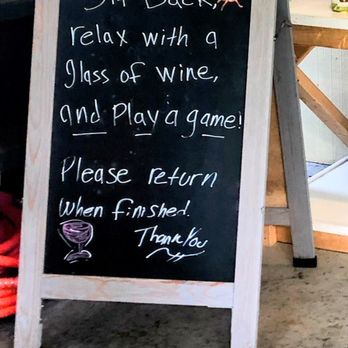 Sit Back,
relax with a
glass of wine,
and Play a game!
Please return
when finished.
Thank You